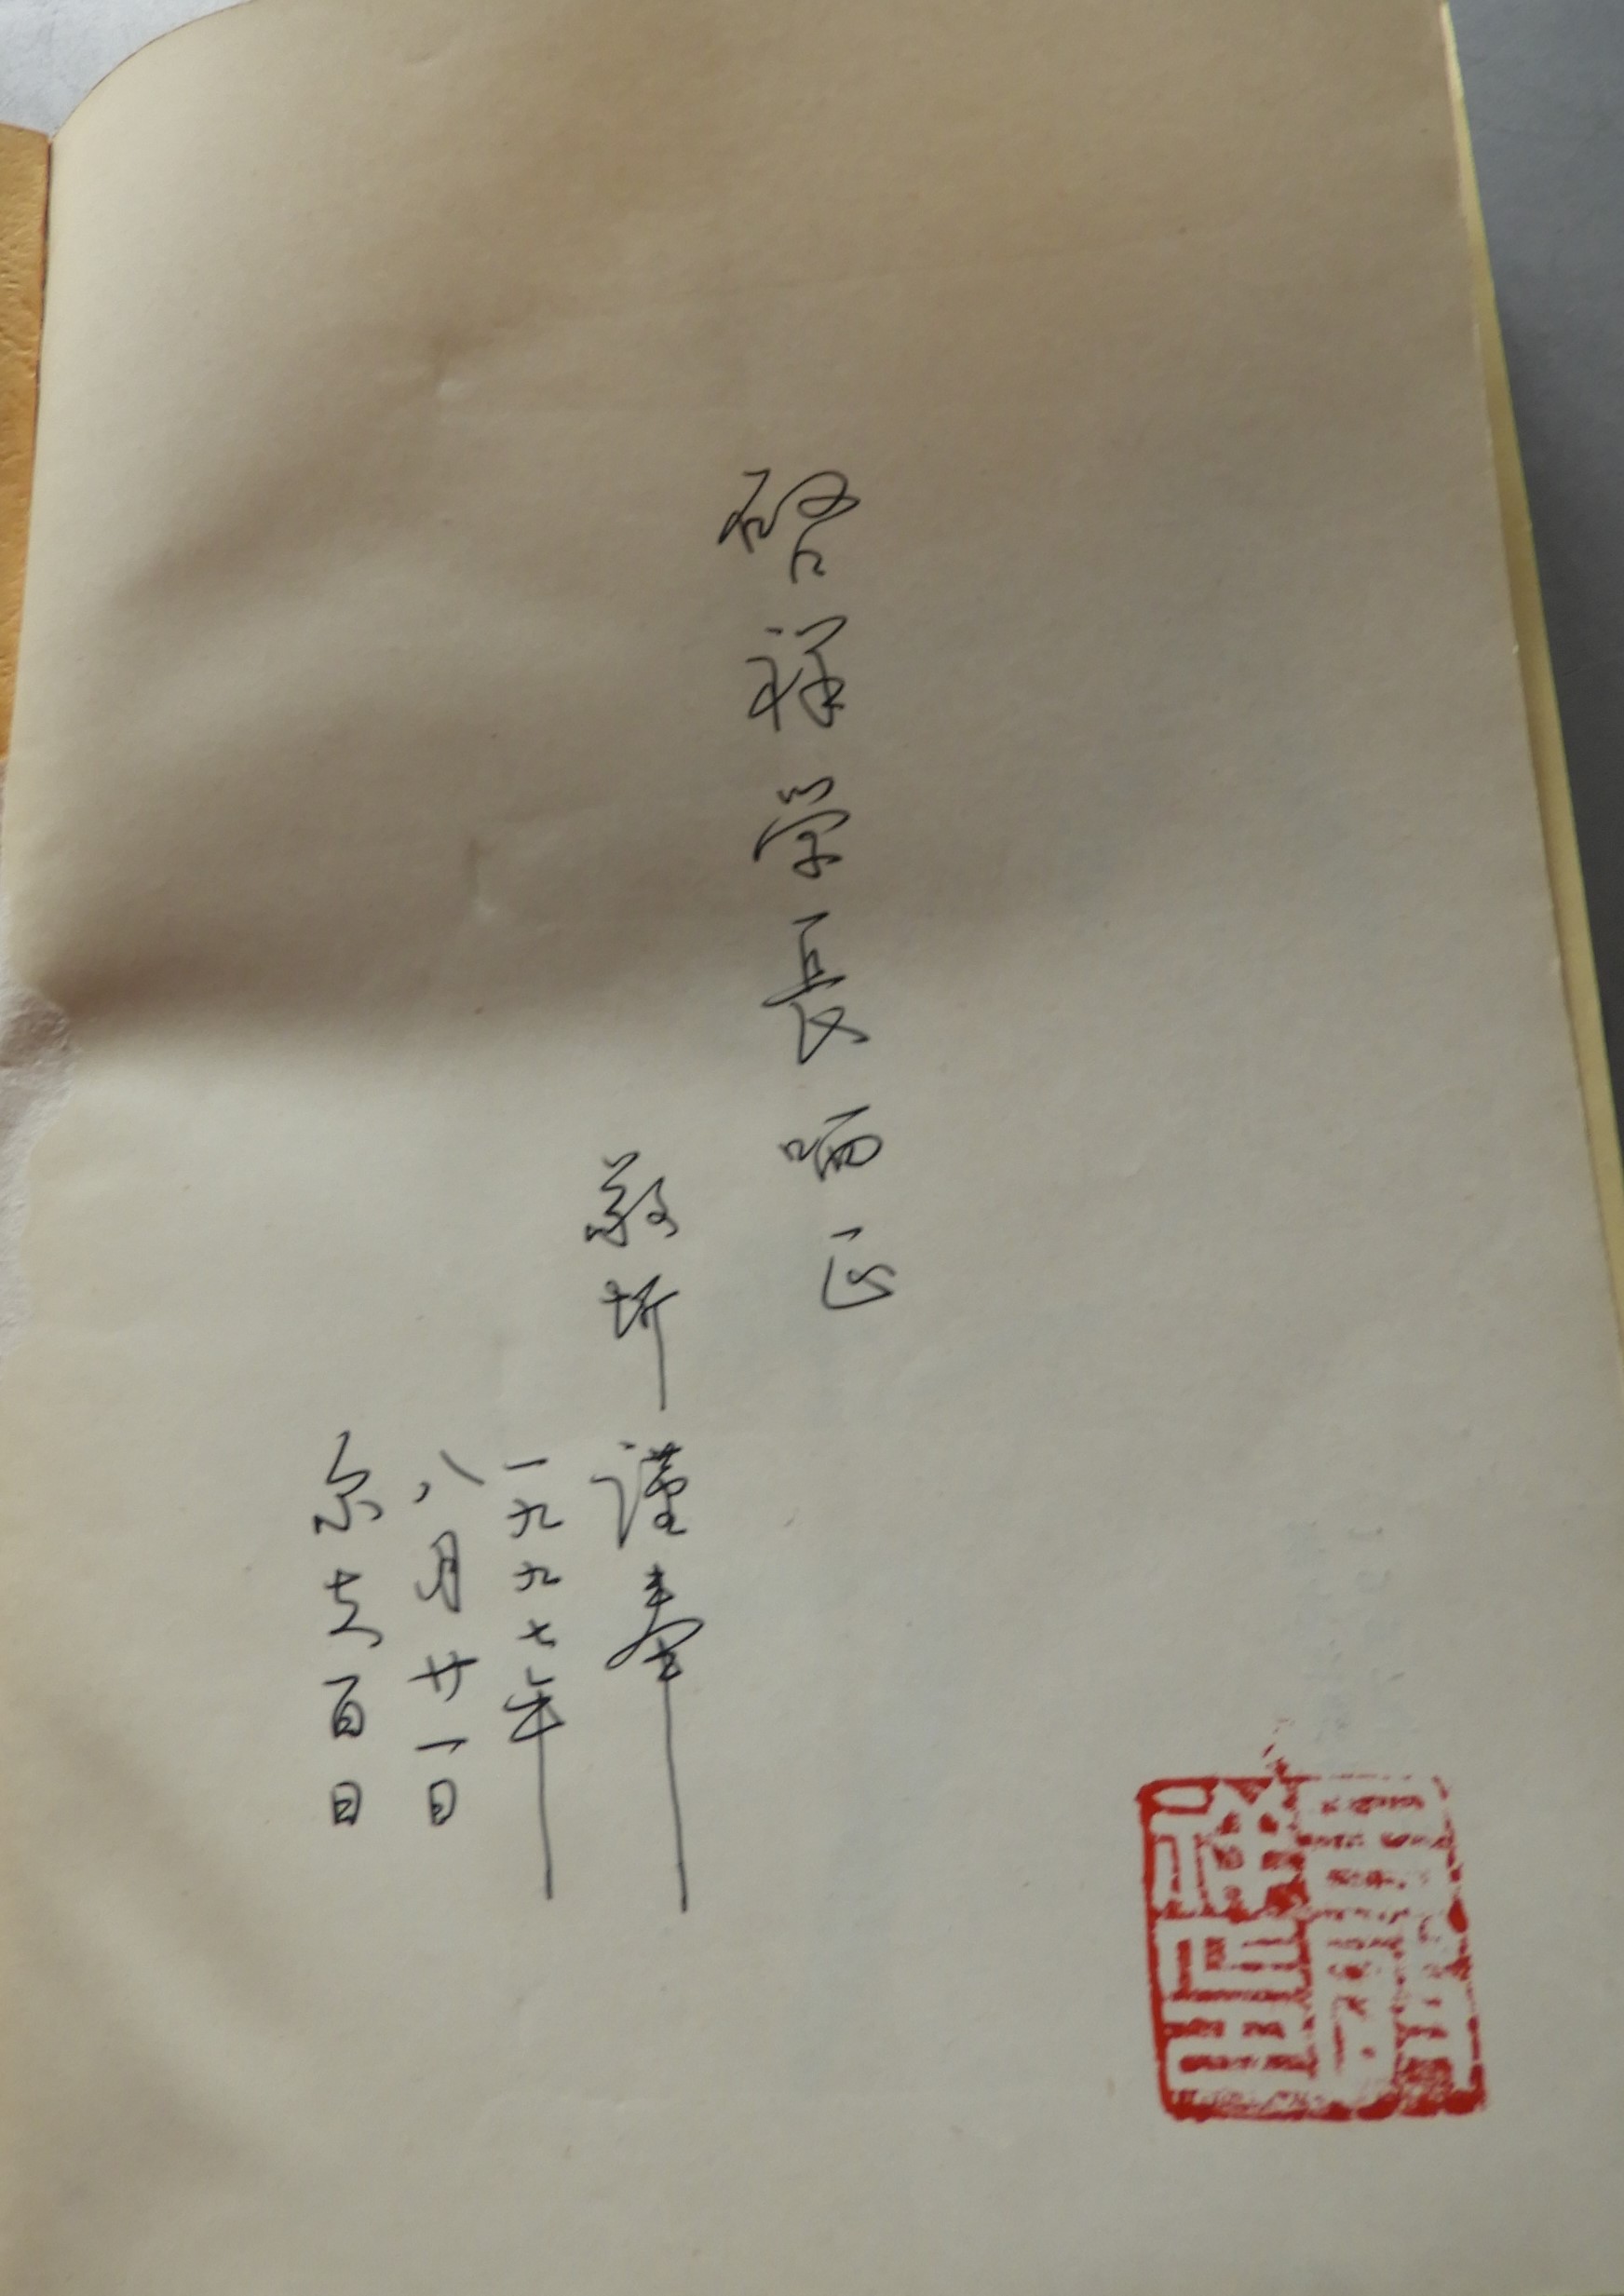 啓祥学長哂正
敬圻
謹奉
一九九七年
八月廿一日
尔夫百日